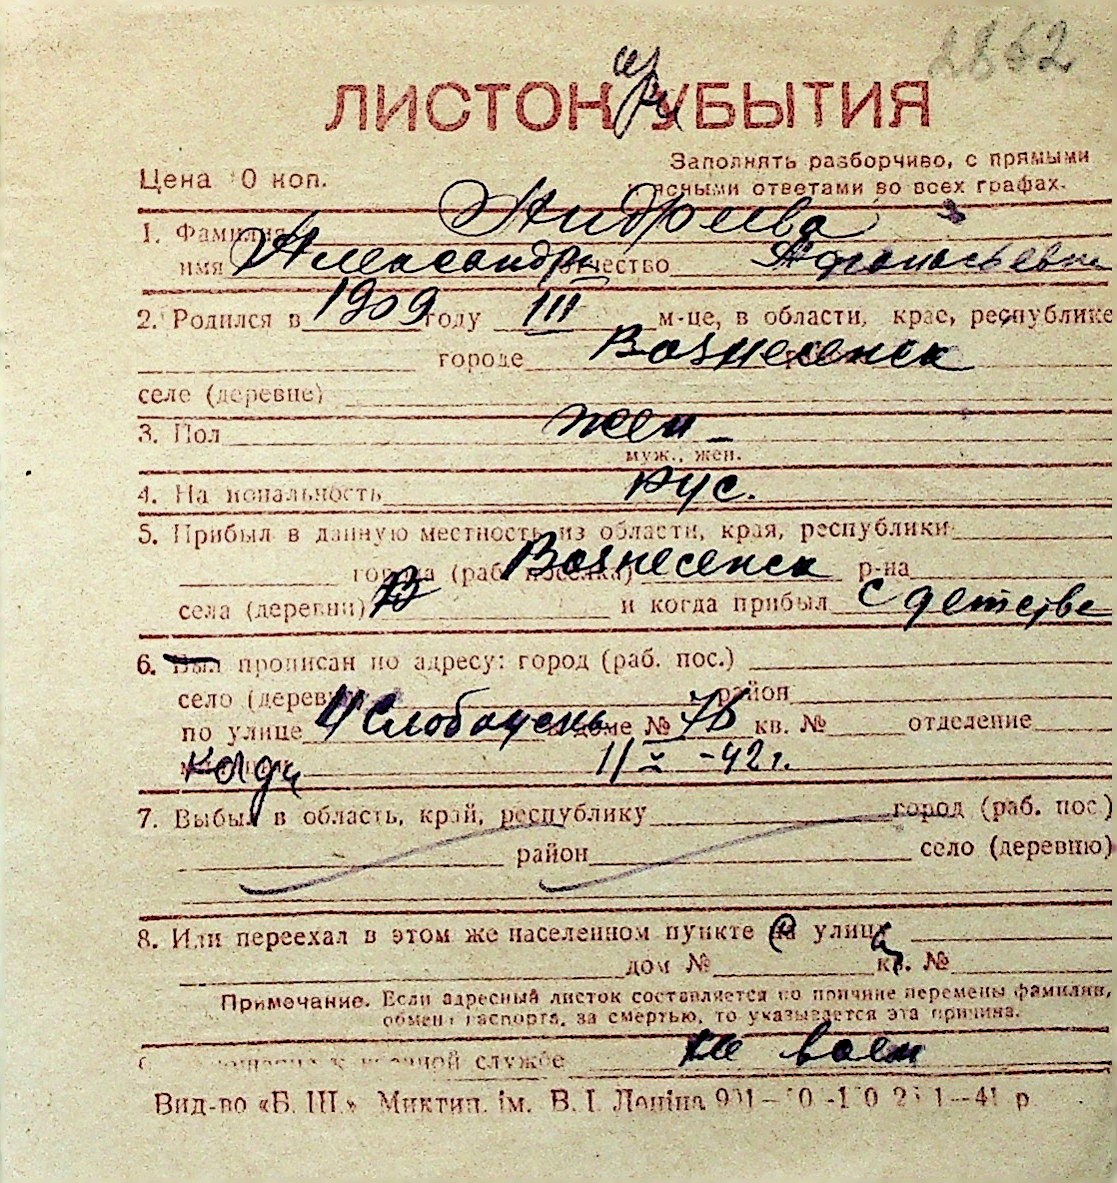 2862
ЛИСТОК УБЫТИЯ
при
Цена 0 коп.
Заполнять разборчиво, с прямыми
ясными ответами во всех графах.
1. Фамилия Андреева
имя Александра отчество Афанасьевна
2. Родился в 1909 году III м-це, в области, крае, республике
городе Вознесенск
селе (деревне)
3. Пол жен
муж., жен.
4. Национальность рус.
5. Прибыл в данную местность из области, края, республики
города (раб. поселка) Вознесенск р-на
села (деревни) В и когда прибыл с детства
6. Был прописан по адресу: город (раб. пос.)
село (деревня) район
по улице в доме № 76 кв. № отделение
11 X -42 г.
7. Выбыл в область, край, республику город (раб. пос)
район село (деревню)
8. Или переехал в этом же населенном пункте на улицу
дом № кв. №
Примечание. Если адресный листок составляется по причине перемены фамилии,
обмена паспорта, за смертью, то указывается эта причина.
военной службе не воен
Вид-во «Б. Ш.» Миктип. ім. В. І. Леніна